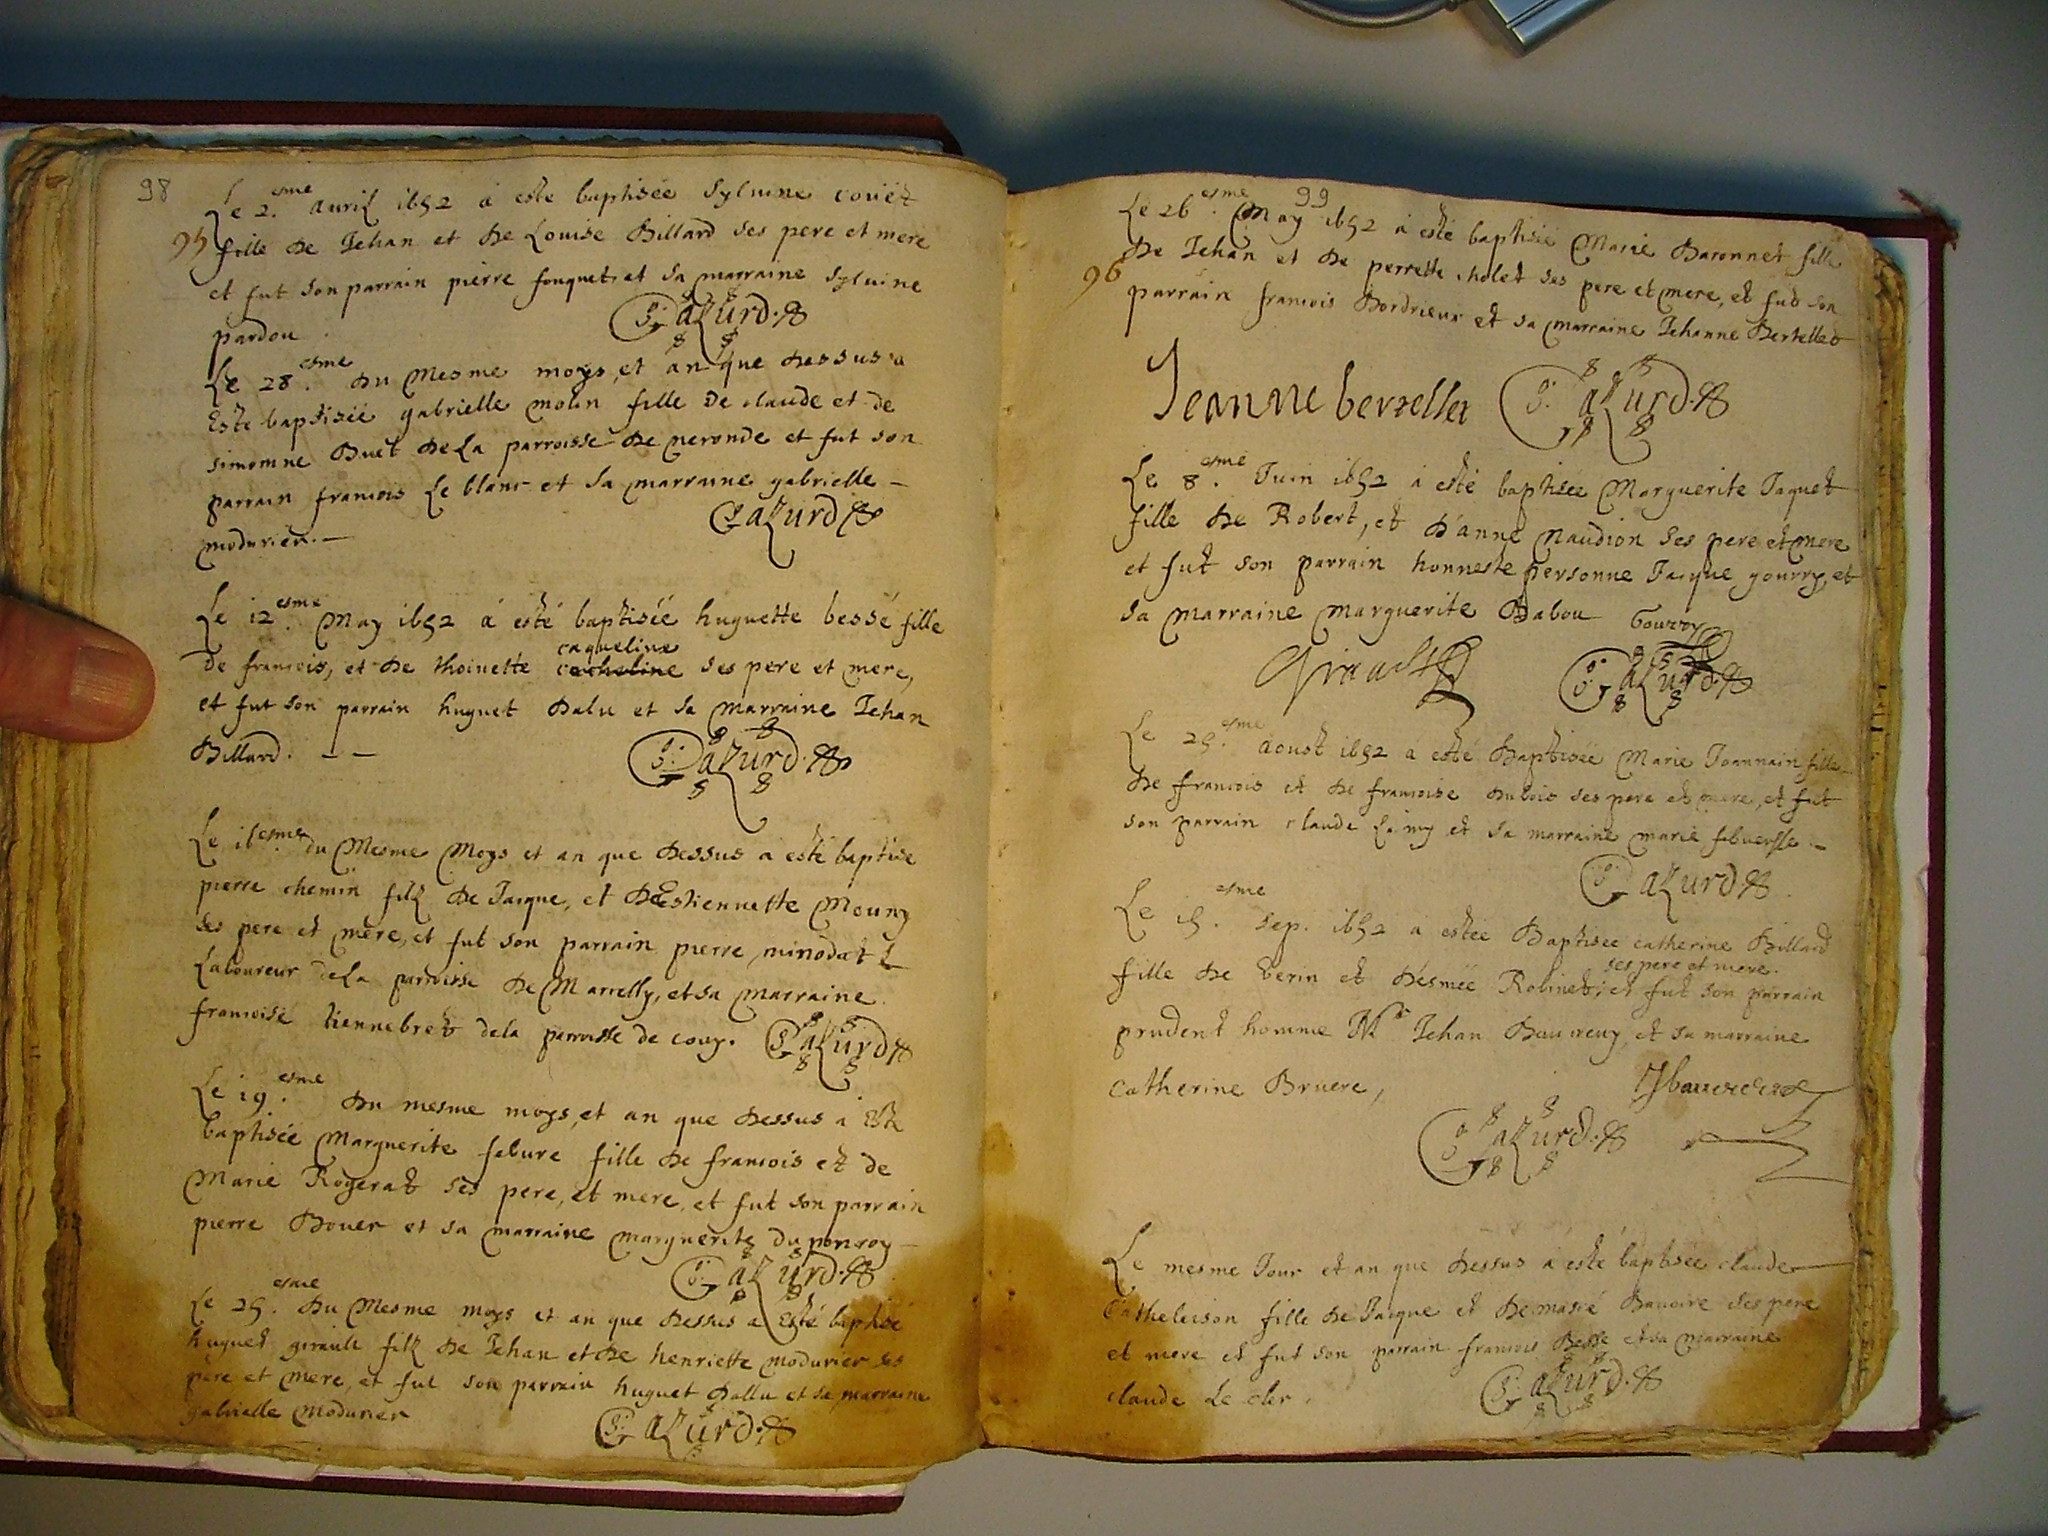 98
Le 2.esme auril 1652 a este baptisée Syluine couët
95
fille de Jehan et de Louise Billard ses pere et mere
et fut son parrain pierre fouquet, et sa marraine Syluine
pardou.
G. aZurd.
Le 28.esme du mesme moys, et an que dessus a
Este baptisée gabrielle molin fille de claude et de
simomne Buet de La parroisse de neronde et fut son
parrain francois Le blanc et sa marraine gabrielle –
modurier. –
G aZurd
Le 12.esme May 1652 a esté baptisée huguette bessé fille
caqueline
de francois, et de thoinette cacheline ses pere et mere,
et fut son parrain huguet Dalu et sa marraine Jehan
Billard. – –
G. aZurd.
Le 16.esme du Mesme Moys et an que dessus a esté baptise
pierre chemin filz de Jacque, et de Estiennette Mouny
ses pere et mere, et fut son parrain pierre minodat L
Laboureur de La parroisse de Marcelly, et sa marraine
francoise tiennebret de la parroisse de couy.
G. aZurd
Le 19.esme du mesme moys, et an que dessus a Esté
baptisée Marguerite febure fille de francois et de
Marie Rogerat ses pere, et mere, et fut son parrain
pierre Bouer et sa marraine marguerite du ponroy –
G. aZurd.
Le 25.esme Du Mesme moys et an que dessus a Esté baptisé
huguet girault filz de Jehan et de henriette modurier ses
pere et mere, et fut son parrain huguet Dallu et sa marraine
gabrielle modurier
G. aZurd.
99
Le 26.esme May 1652 a esté baptisée Marie Baronnet fille
96
de Jehan et de perrette cholet ses pere et mere, et fut son
parrain francois Bordrieux et sa marraine Jehanne Bertellet
Jeanne bertellet
G. aZurd.
Le 8.esme Juin 1652 a esté baptisee Marguerite Jaquet
fille de Robert, et d'anne Naudion ses pere et mere
et fut son parrain honneste personne Jacque gourry, et
sa marraine marguerite Babou
Gourry
Girault
G. aZurd.
Le 25.esme aoust 1652 a esté Baptisée Marie Joannain fille
de francois et de francoise dubois ses pere et mere, et fut
son parrain claude et sa marraine marie –
G. aZurd.
Le 15.esme Sep. 1652 a estée Baptisee catherine Billard
ses pere et mere.
fille de Verin et d'esmée Robinet, et fut son parrain
prudent homme Me Jehan Bauureuy, et sa marraine
catherine Bruere,
G. aZurd.
Le mesme Jour et an que dessus a esté baptisée claude
Catheleison fille de Jacque et de Masié Bauoire ses pere
et mere et fut son parrain francois Besse et sa marraine
claude Le cler.
G. aZurd.